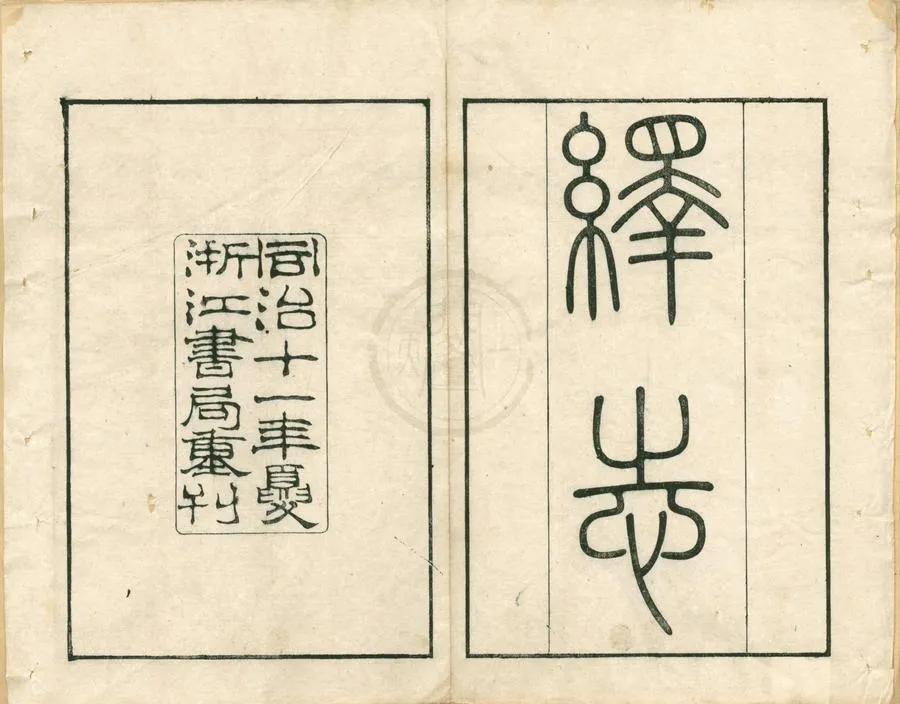 繹志
同治十一年夏
浙江書局重刊